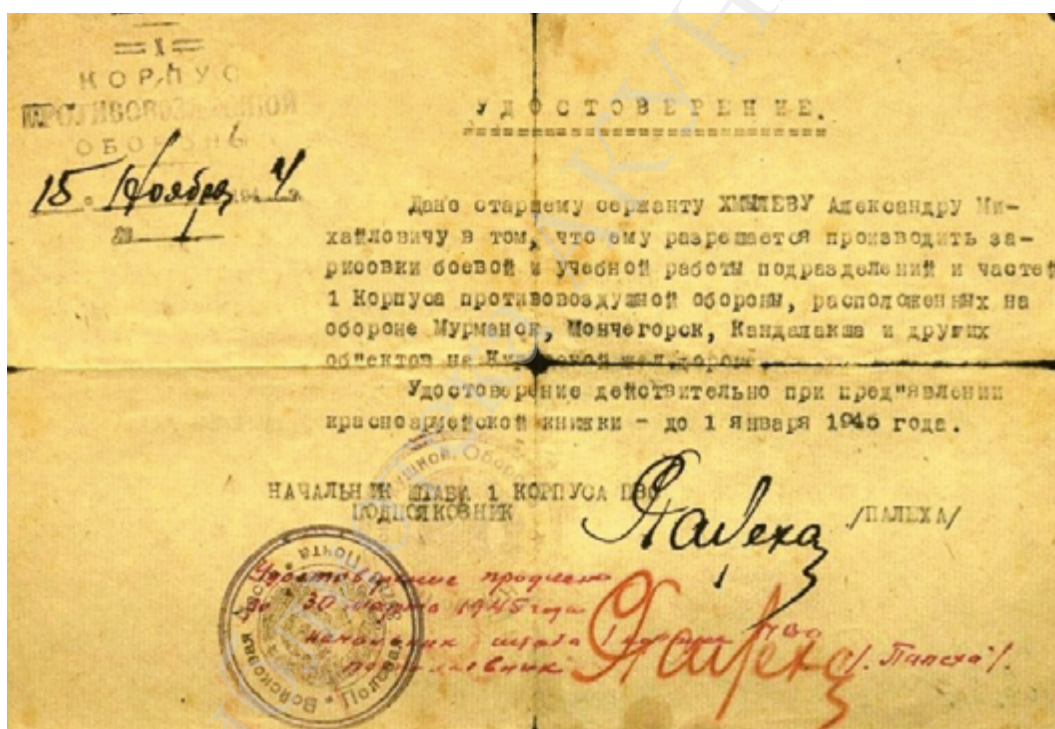 = 1 =
КОРПУС
ПРОТИВОВОЗДУШНОЙ
ОБОРОНЫ
15. Ноября 1944 г.
№ 1
УДОСТОВЕРЕНИЕ.
Дано старшему сержанту ХМЫЛЕВУ Александру Ми-
хайловичу в том, что ему разрешается производить за-
рисовки боевой и учебной работы подразделений и частей
1 Корпуса противовоздушной обороны, расположенных на
обороне Мурманск, Мончегорск, Кандалакша и других
об"ектов на Кировской жел.дороге
Удостоверение действительно при пред"явлении
красноармейской книжки - до 1 января 1945 года.
НАЧАЛЬНИК ШТАБА 1 КОРПУСА ПВО
ПОДПОЛКОВНИК
/ПАЛЕХА/
Удостоверение продлено
до 30 марта 1945 года
начальник штаба 1 корпуса ПВО
подполковник /Палеха/.